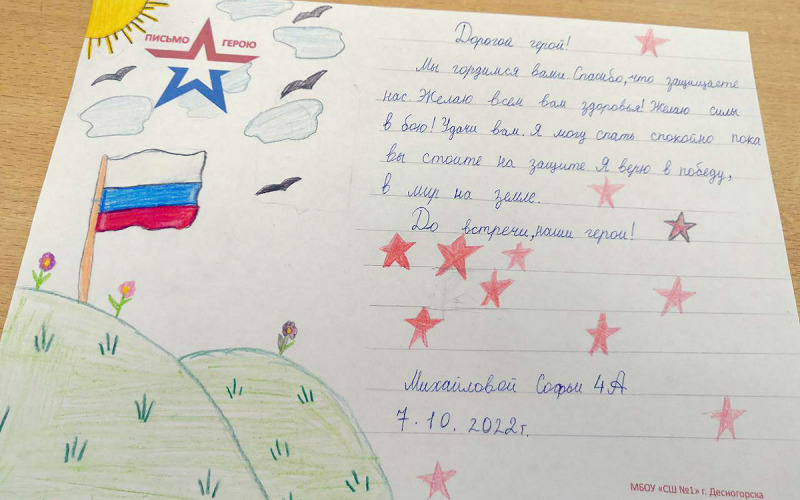 ПИСЬМО ГЕРОЮ
Дорогой герой!
Мы гордимся вами. Спасибо, что защищаете
нас. Желаю всем вам здоровья! Желаю силы
в бою! Удачи вам. Я могу спать спокойно пока
вы стоите на защите. Я верю в победу,
в мир на земле.
До встречи, наши герои!
Михайловой Софьи 4А
7.10.2022г.
МБОУ «СШ №1» г. Десногорска